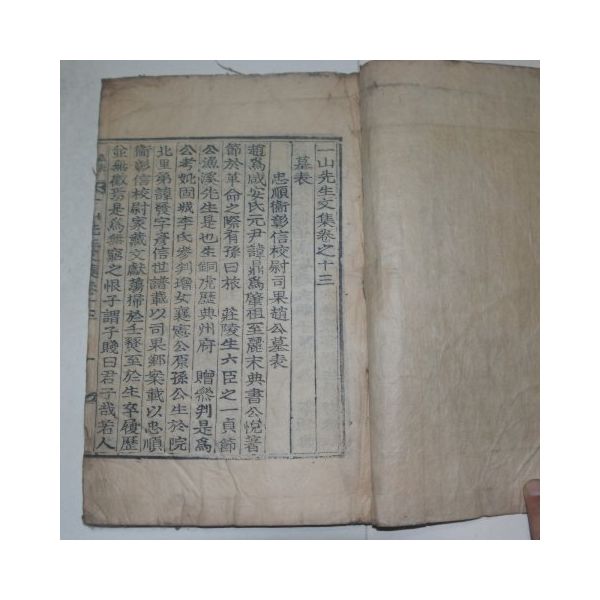 一山先生文集卷之十三
墓表
忠順衛彰信校尉司果趙公墓表
趙爲咸安氏元尹諱鼎爲肇祖至麗末典書公悅著
節於革命之際有孫曰旅 莊陵生六臣之一貞節
公漁溪先生是也生銅虎歷典州府 贈參判是爲
公考妣固城李氏參判增女襄憲公原孫公生於院
北里第諱發字 信世譜載以司果鄕案載以忠順
衛彰信校尉家藏文獻蕩掃於壬燹至於生卒履歷
並無徵焉是爲無窮之恨子謂子賤曰君子哉若人